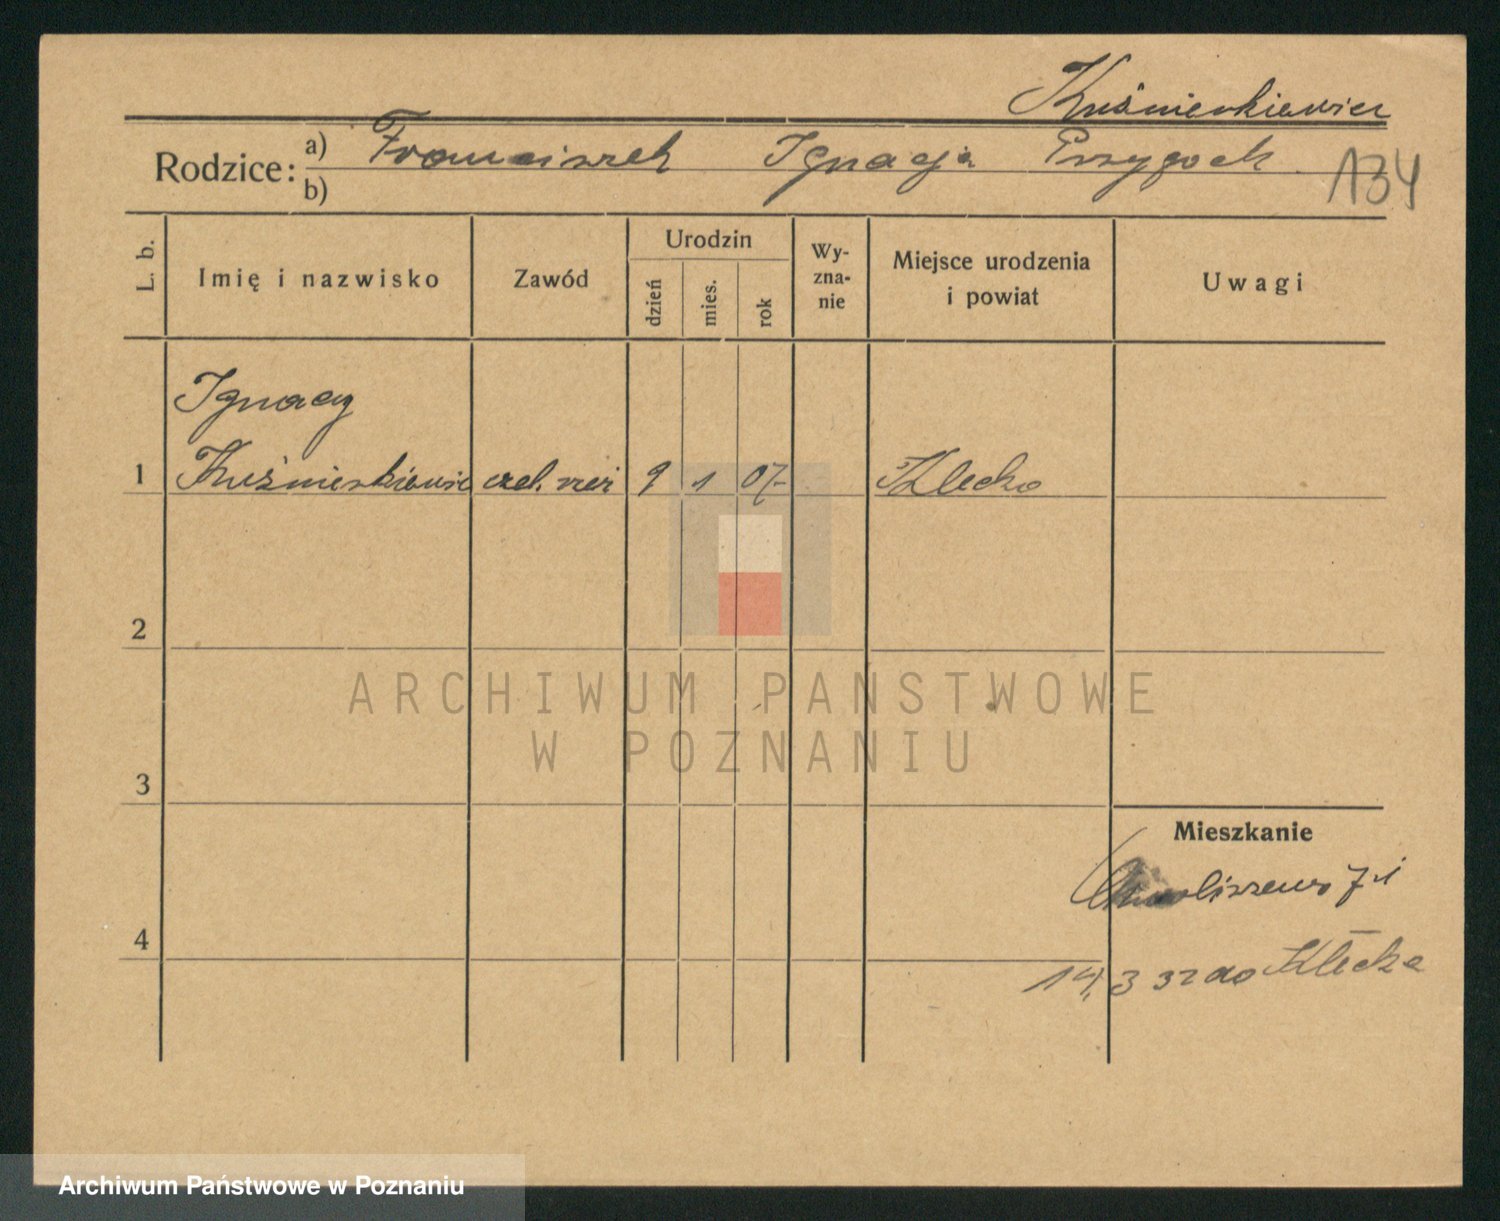 Kuśnierkiewicz
Rodzice: a) Franciszek Ignacja Przygock
134
b)
L. b.
Imię i nazwisko
Zawód
Urodzin
dzień
mies.
rok
Wy-
zna-
nie
Miejsce urodzenia
i powiat
Uwagi
Ignacy
1 Kuśnierkiewic czel. rzeź 9 1 07 Klecko
2
ARCHIWUM PAŃSTWOWE
W POZNANIU
3
Mieszkanie
7-1
4
14.3 32 do Klecka
Archiwum Państwowe w Poznaniu